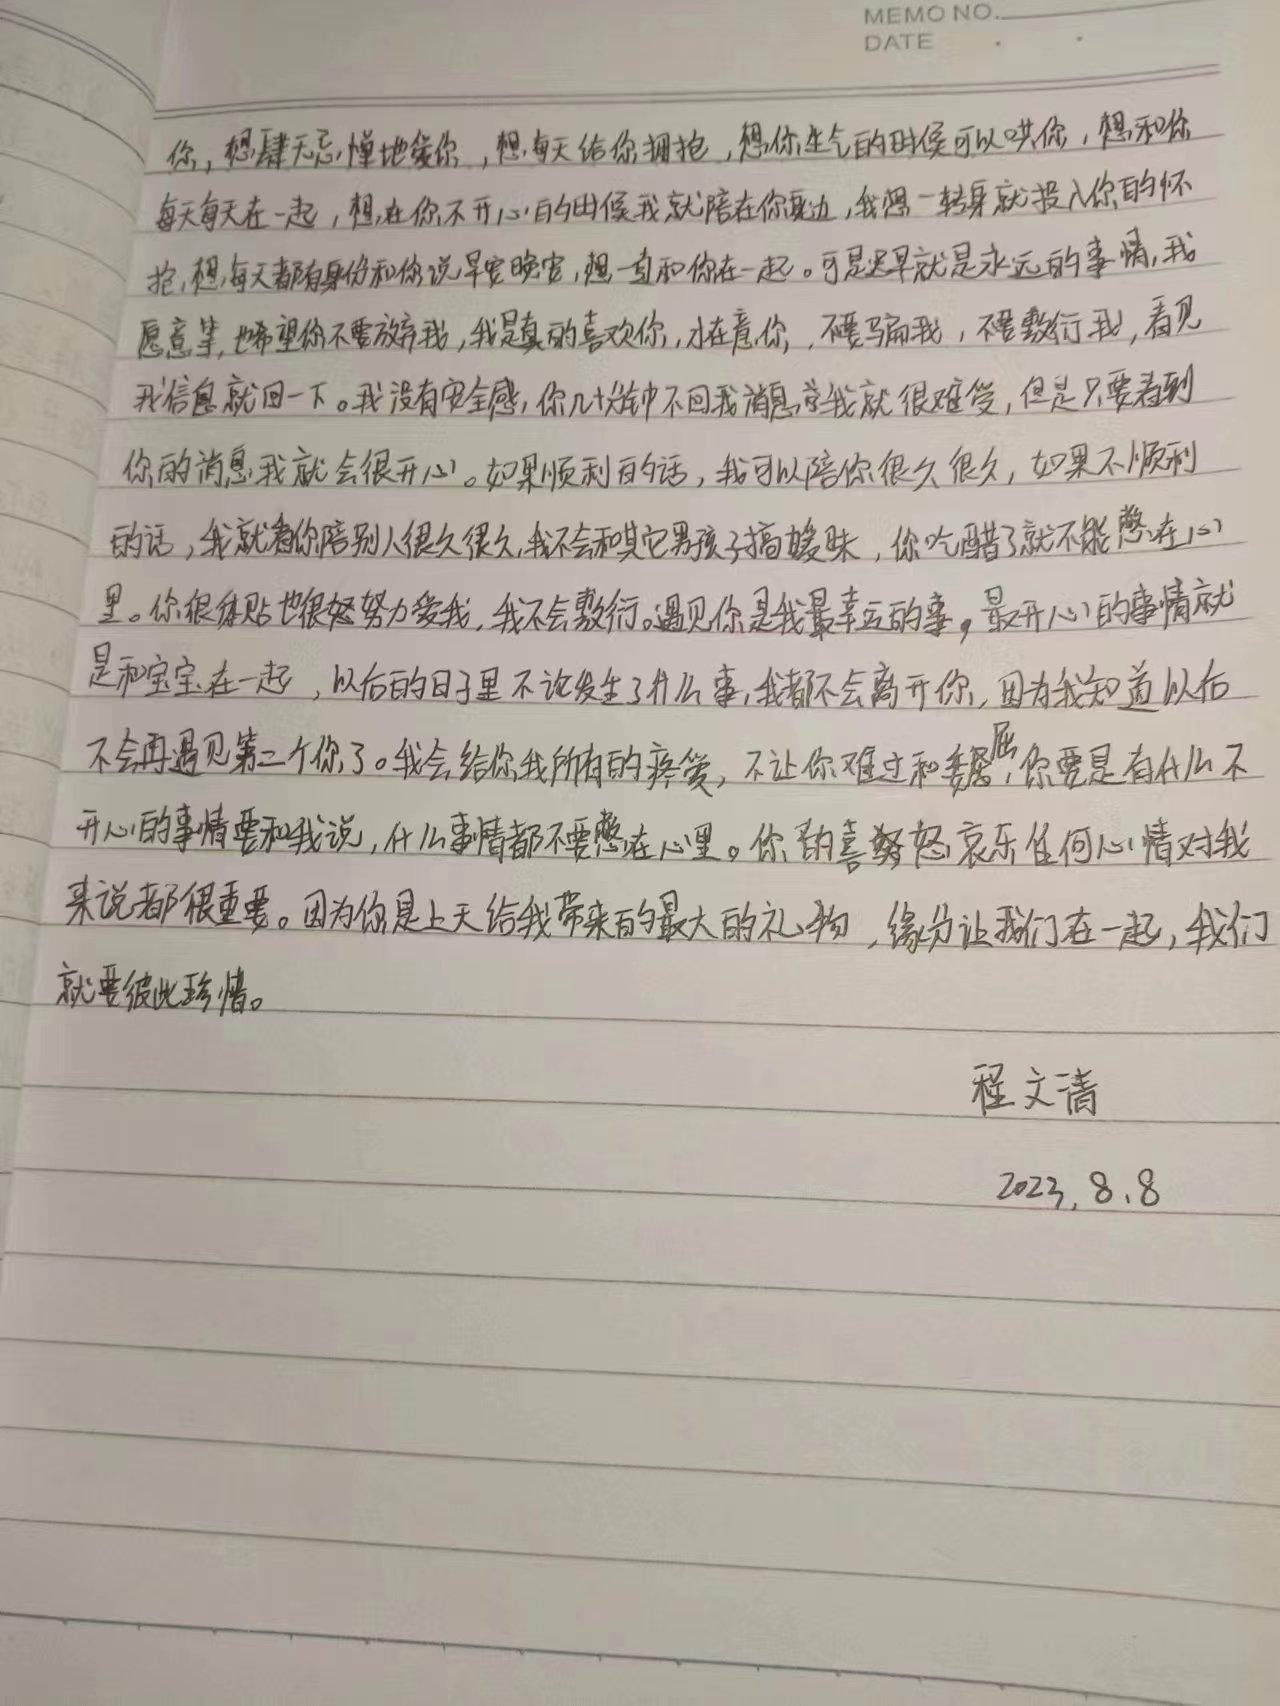 MEMO NO.
DATE . .
你，想肆无忌惮地爱你，想每天给你拥抱，想你生气的时候可以哄你，想和你
每天每天在一起，想在你不开心的时候我就陪在你身边，我想一转身就投入你的怀
抱，想每天都有身份和你说早安晚安，想一直和你在一起。可是迟早就是永远的事情，我
愿意等，也希望你不要放弃我，我是真的喜欢你，在意你，不要骗我，不要敷衍我，看见
我信息就回一下。我没有安全感，你几十分钟不回我消息我就很难受，但是只要看到
你的消息我就会很开心。如果顺利的话，我可以陪你很久很久，如果不顺利
的话，我就看你陪别人很久很久，我不会和其它男孩子搞暧昧，你吃醋了就不能憋在心
里。你很体贴也很努力爱我，我不会敷衍。遇见你是我最幸运的事，最开心的事情就
是和宝宝在一起，以后的日子里不论发生了什么事，我都不会离开你，因为我知道以后
不会再遇见第二个你了。我会给你我所有的疼爱，不让你难过和委屈，你要是有什么不
开心的事情要和我说，什么事情都不要憋在心里。你的喜怒哀乐任何心情对我
来说都很重要。因为你是上天给我带来的最大的礼物，缘分让我们在一起，我们
就要彼此珍惜。
程文清
2023.8.8